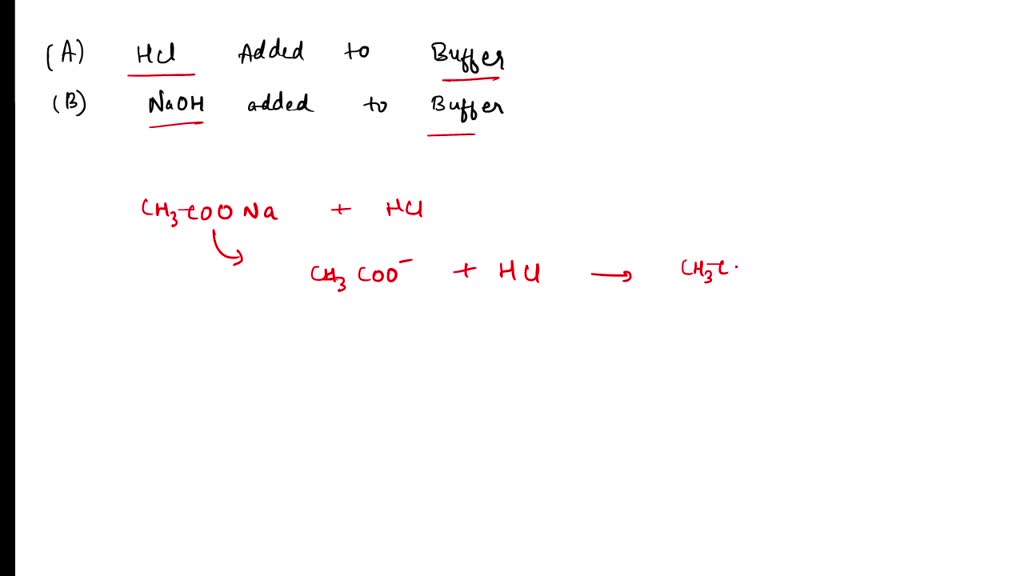 (A) HCl Added to Buffer
(B) NaOH added to Buffer
CH3-COONa + HCl
CH3COO⁻ + HCl → CH3-C.